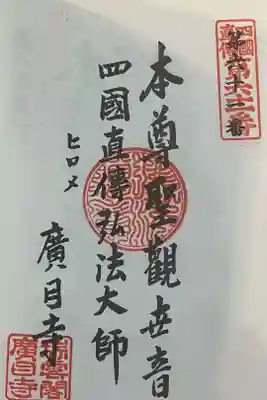 第六十二番
本尊聖觀世音
四國直傳弘法大師
ヒロメ
廣目寺
廣目寺